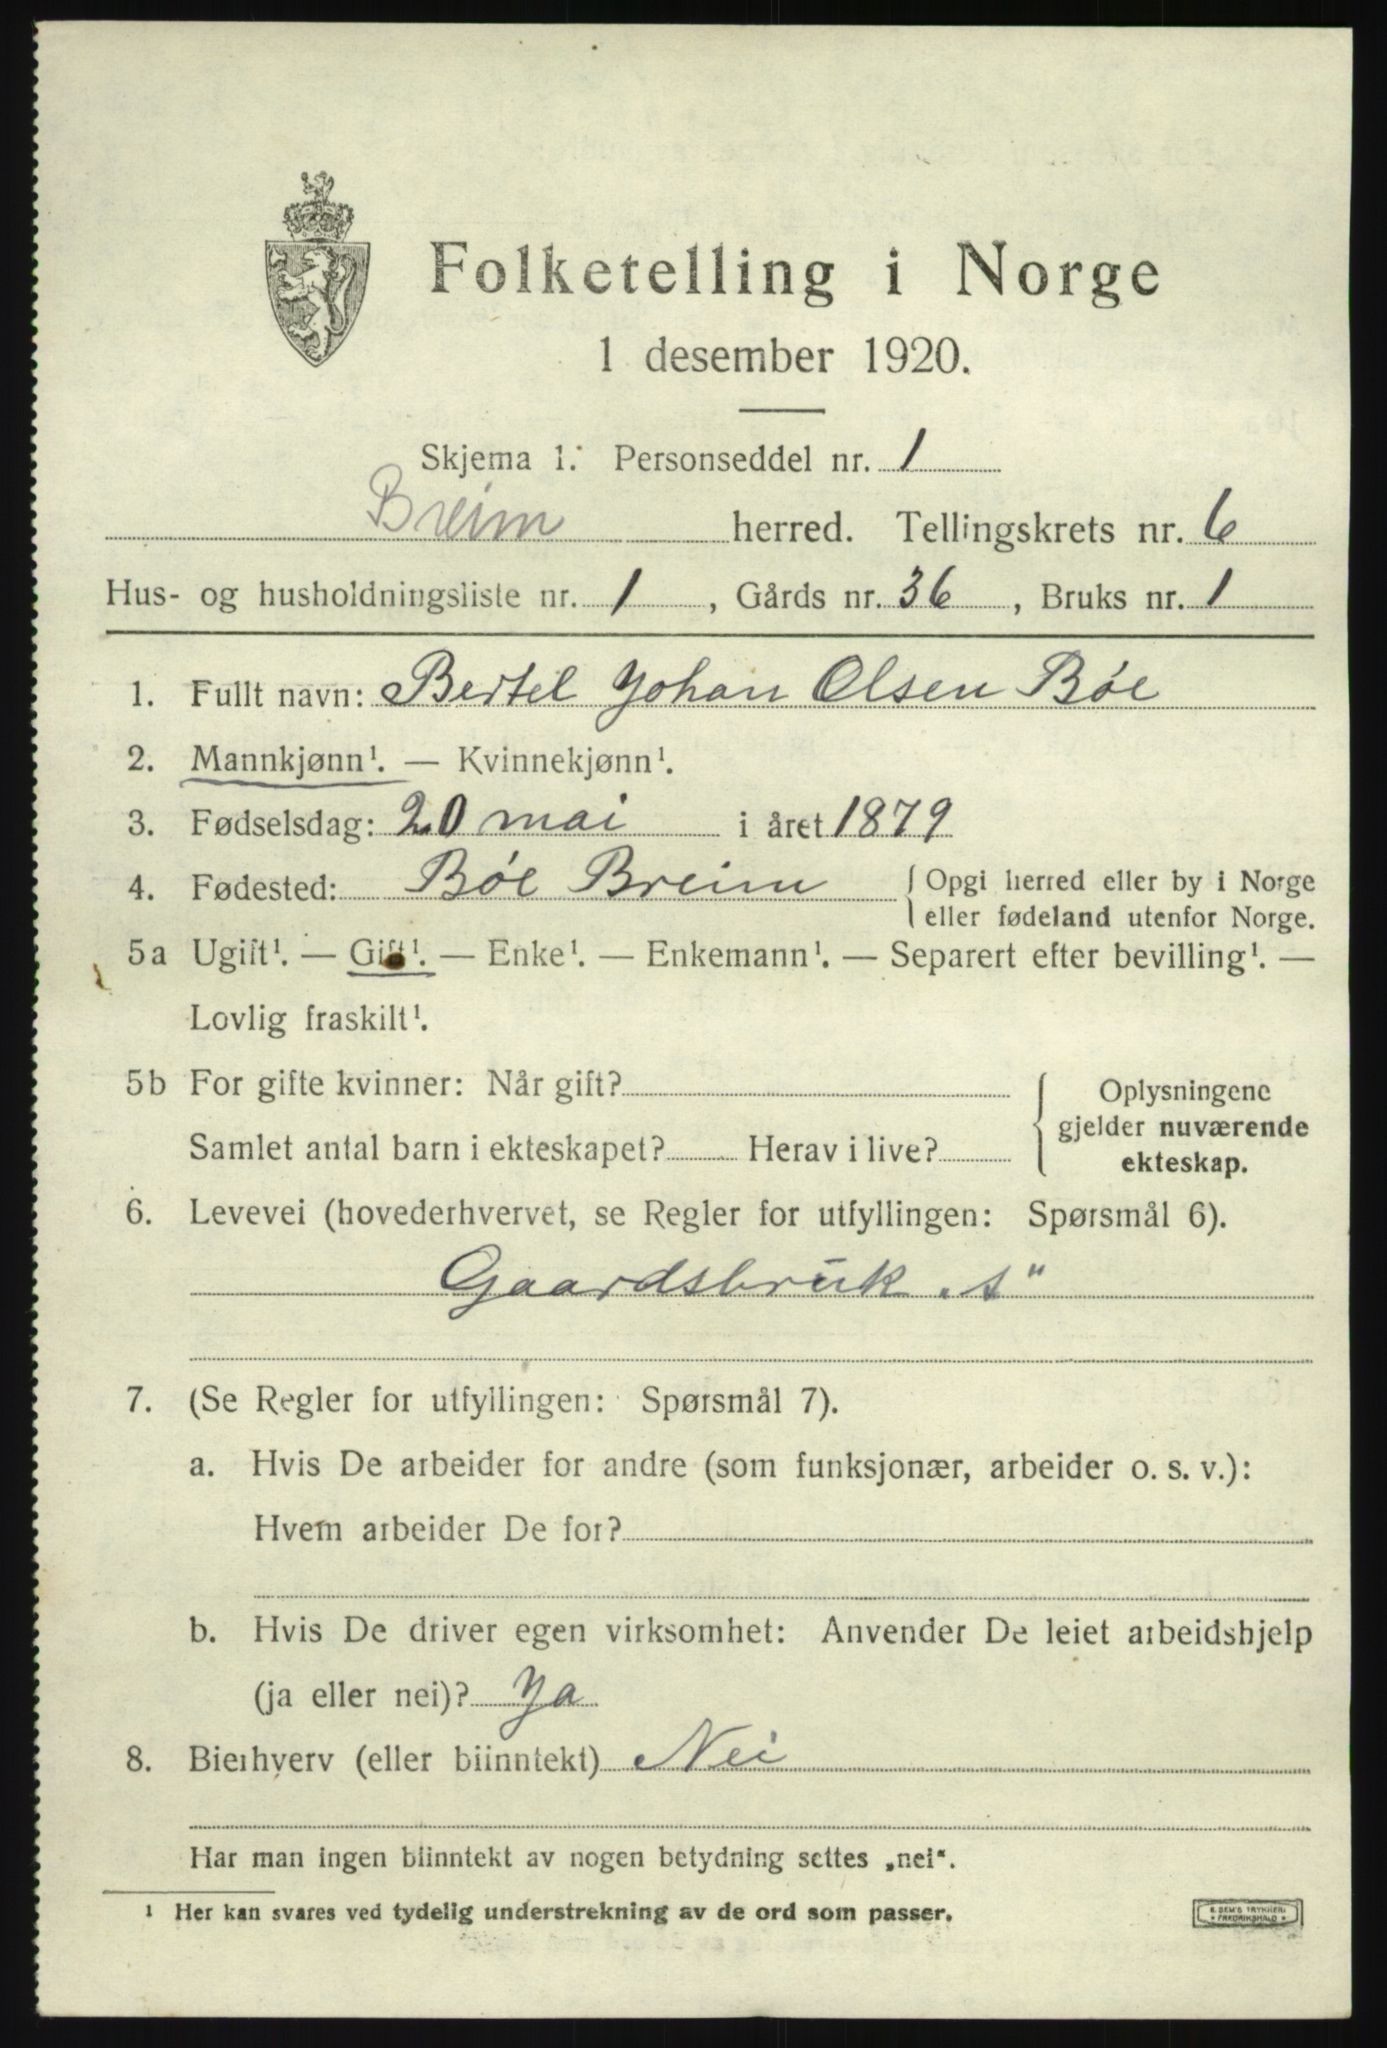 Folketelling i Norge
1 desember 1920.
Skjema 1. Personseddel nr. 1
Breim herred. Tellingskrets nr. 6
Hus- og husholdningsliste nr. 1, Gårds nr. 36, Bruks nr. 1
1. Fullt navn: Bertel Johan Olsen Bóe
2. Mannkjønn¹. — Kvinnekjønn¹.
3. Fødselsdag: 20 mai i året 1879
4. Fødested: Bóe Breim { Opgi herred eller by i Norge
eller fødeland utenfor Norge.
5a Ugift¹. — Gift¹. — Enke¹. — Enkemann¹. — Separert efter bevilling¹. —
Lovlig fraskilt¹.
5b For gifte kvinner: Når gift? { Oplysningene
gjelder nuværende
Samlet antal barn i ekteskapet? Herav i live? ekteskap.
6. Levevei (hovederhvervet, se Regler for utfyllingen: Spørsmål 6).
Gaardsbruk „s“
7. (Se Regler for utfyllingen: Spørsmål 7).
a. Hvis De arbeider for andre (som funksjonær, arbeider o. s. v.):
Hvem arbeider De for?
b. Hvis De driver egen virksomhet: Anvender De leiet arbeidshjelp
(ja eller nei)? Ja
8. Bierhverv (eller biinntekt) Nei
Har man ingen biinntekt av nogen betydning settes „nei“.
¹ Her kan svares ved tydelig understrekning av de ord som passer.
E. SEM'S TRYKKERI
FREDRIKSHALD